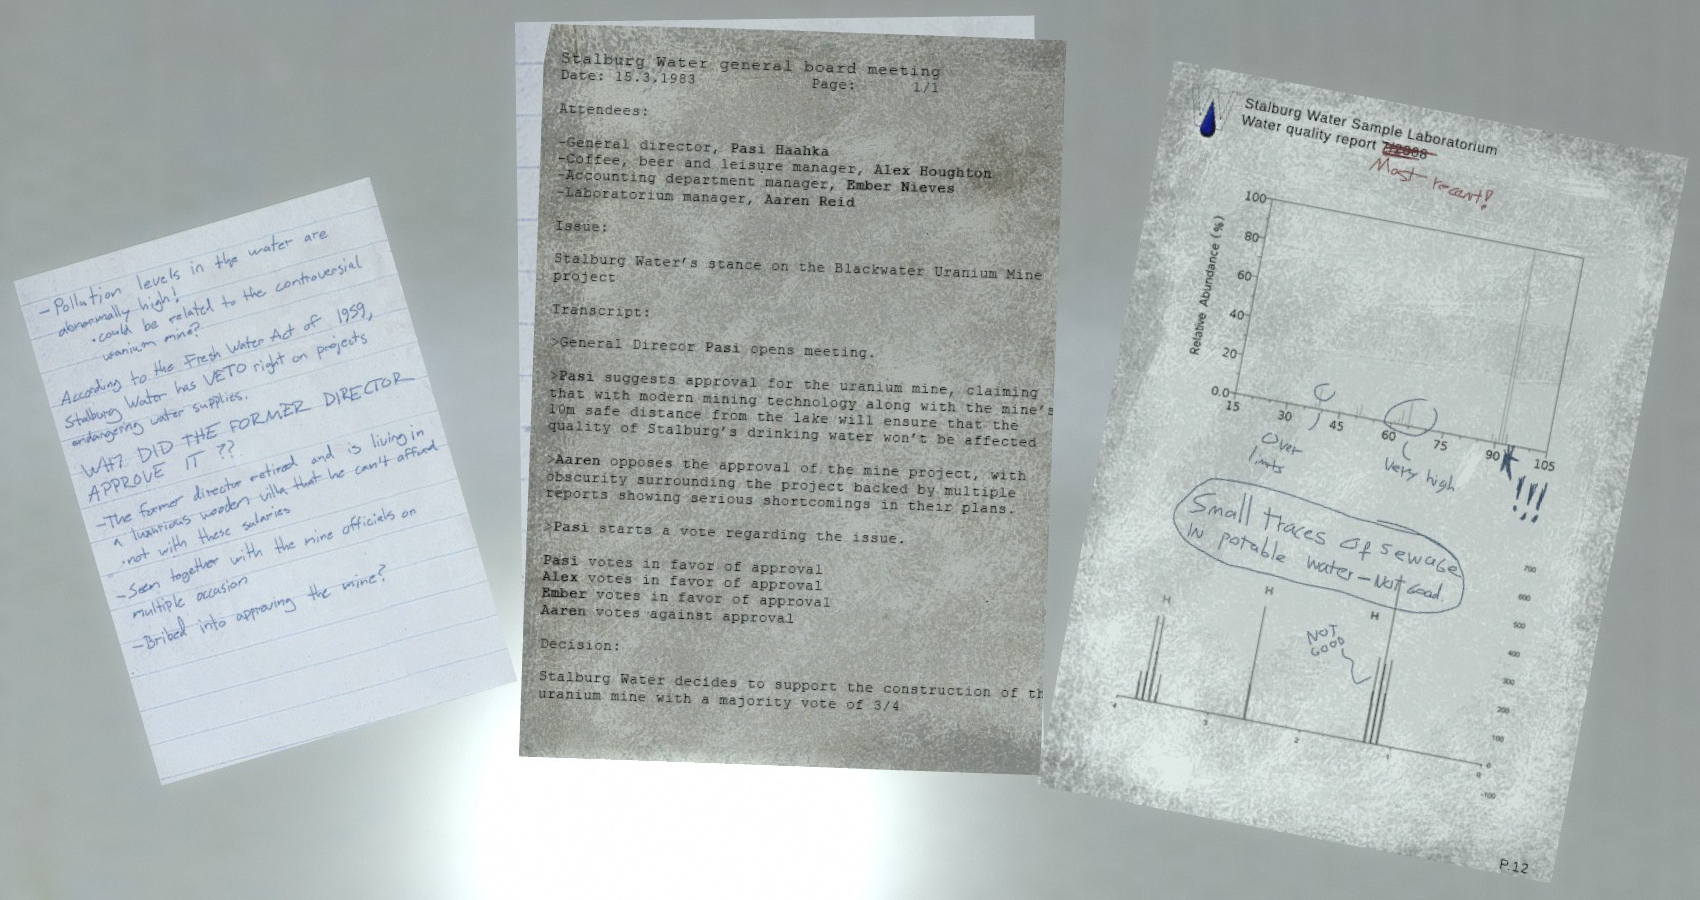 - Pollution levels in the water are
abnormally high!
• could be related to the controversial
uranium mine?
According to the Fresh Water Act of 1959,
Stalburg Water has VETO right on projects
endangering water supplies.
WHY DID THE FORMER DIRECTOR
APPROVE IT ??
- The former director retired and is living in
a luxurious wooden villa that he can't afford
• not with these salaries
- Seen together with the mine officials on
multiple occasion
- Bribed into approving the mine?
Stalburg Water general board meeting
Date: 15.3.1983 Page: 1/1
Attendees:
-General director, Pasi Haahka
-Coffee, beer and leisure manager, Alex Houghton
-Accounting department manager, Ember Nieves
-Laboratorium manager, Aaren Reid
Issue:
Stalburg Water's stance on the Blackwater Uranium Mine
project
Transcript:
>General Direcor Pasi opens meeting.
>Pasi suggests approval for the uranium mine, claiming
that with modern mining technology along with the mine's
10m safe distance from the lake will ensure that the
quality of Stalburg's drinking water won't be affected
>Aaren opposes the approval of the mine project, with
obscurity surrounding the project backed by multiple
reports showing serious shortcomings in their plans.
>Pasi starts a vote regarding the issue.
Pasi votes in favor of approval
Alex votes in favor of approval
Ember votes in favor of approval
Aaren votes against approval
Decision:
Stalburg Water decides to support the construction of th
uranium mine with a majority vote of 3/4
W
Stalburg Water Sample Laboratorium
Water quality report
Most recent!
Relative Abundance (%)
100
80
60
40
20
0.0
15 30 45 60 75 90 105
Over
limits
Very high
!!!
Small traces of sewage
in potable water - Not Good.
H H H
NOT
GOOD
700
600
500
400
300
200
100
0
-100
4 3 2 1 0
P.12